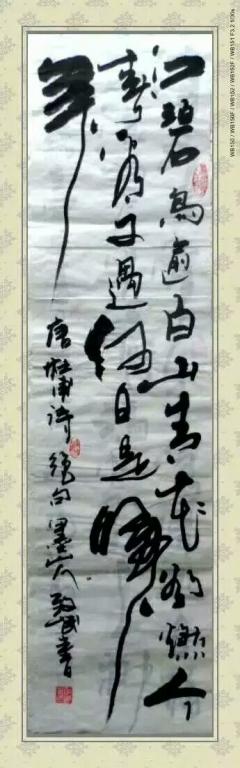 江碧鳥逾白山青花欲燃今
春看又過何日是歸
年
唐杜甫詩絕句墨
WB152 / WB150F / WB152 / WB152F / WB151 F3.2 1/30s